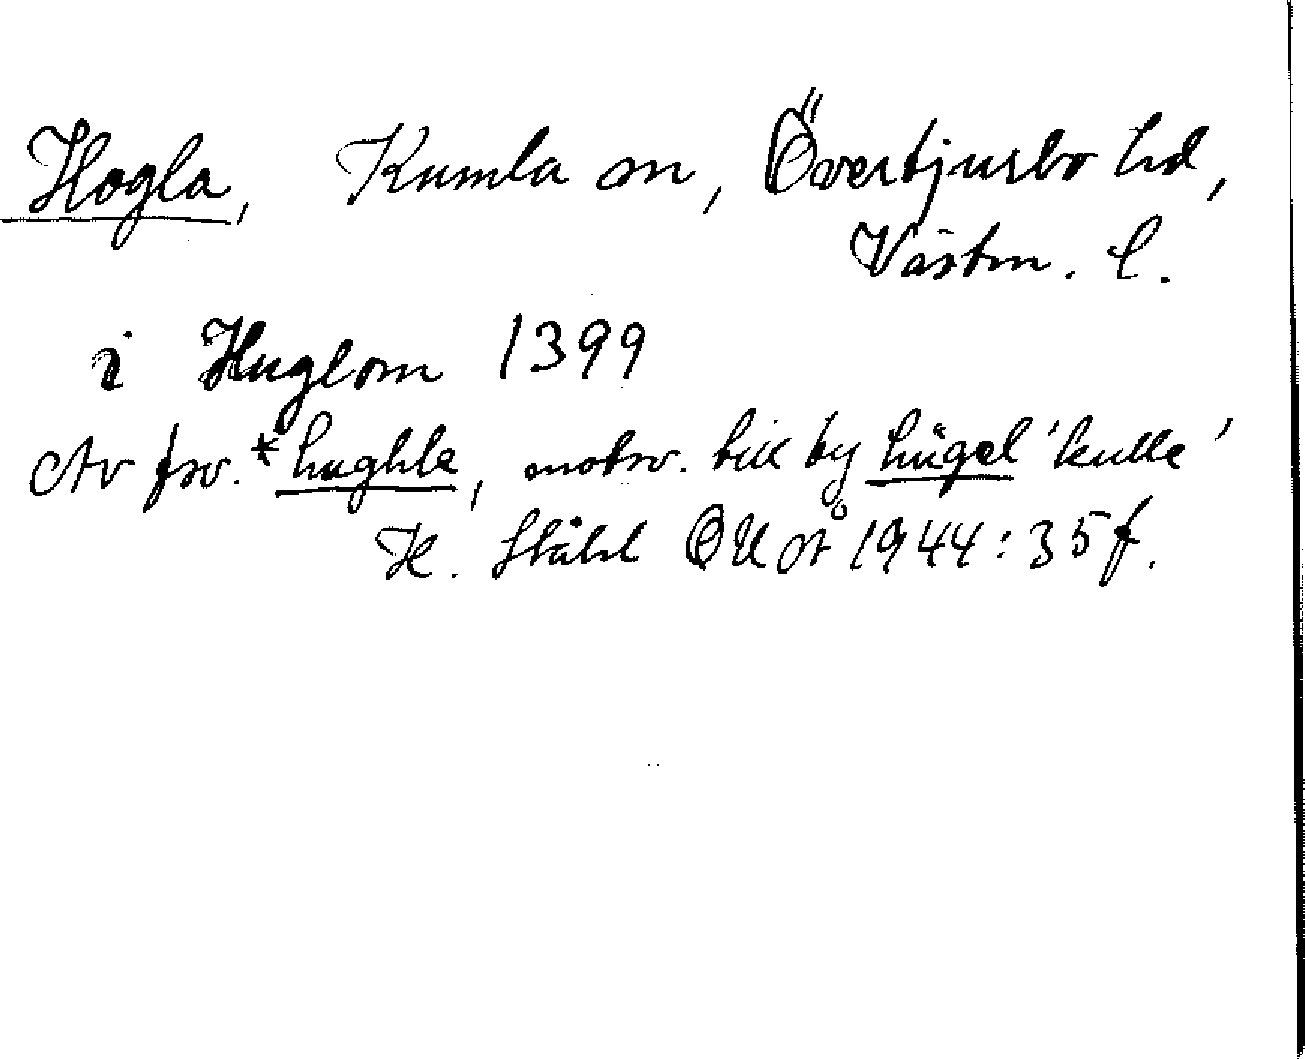 Hogla, Kumla sn, Övertjurbo hd,
Västm. l.
i Huglom 1399
Av fsv. *hughle, motsv. till ty hügel 'kulle'
H. Ståhl OUÅ 1944:35f.